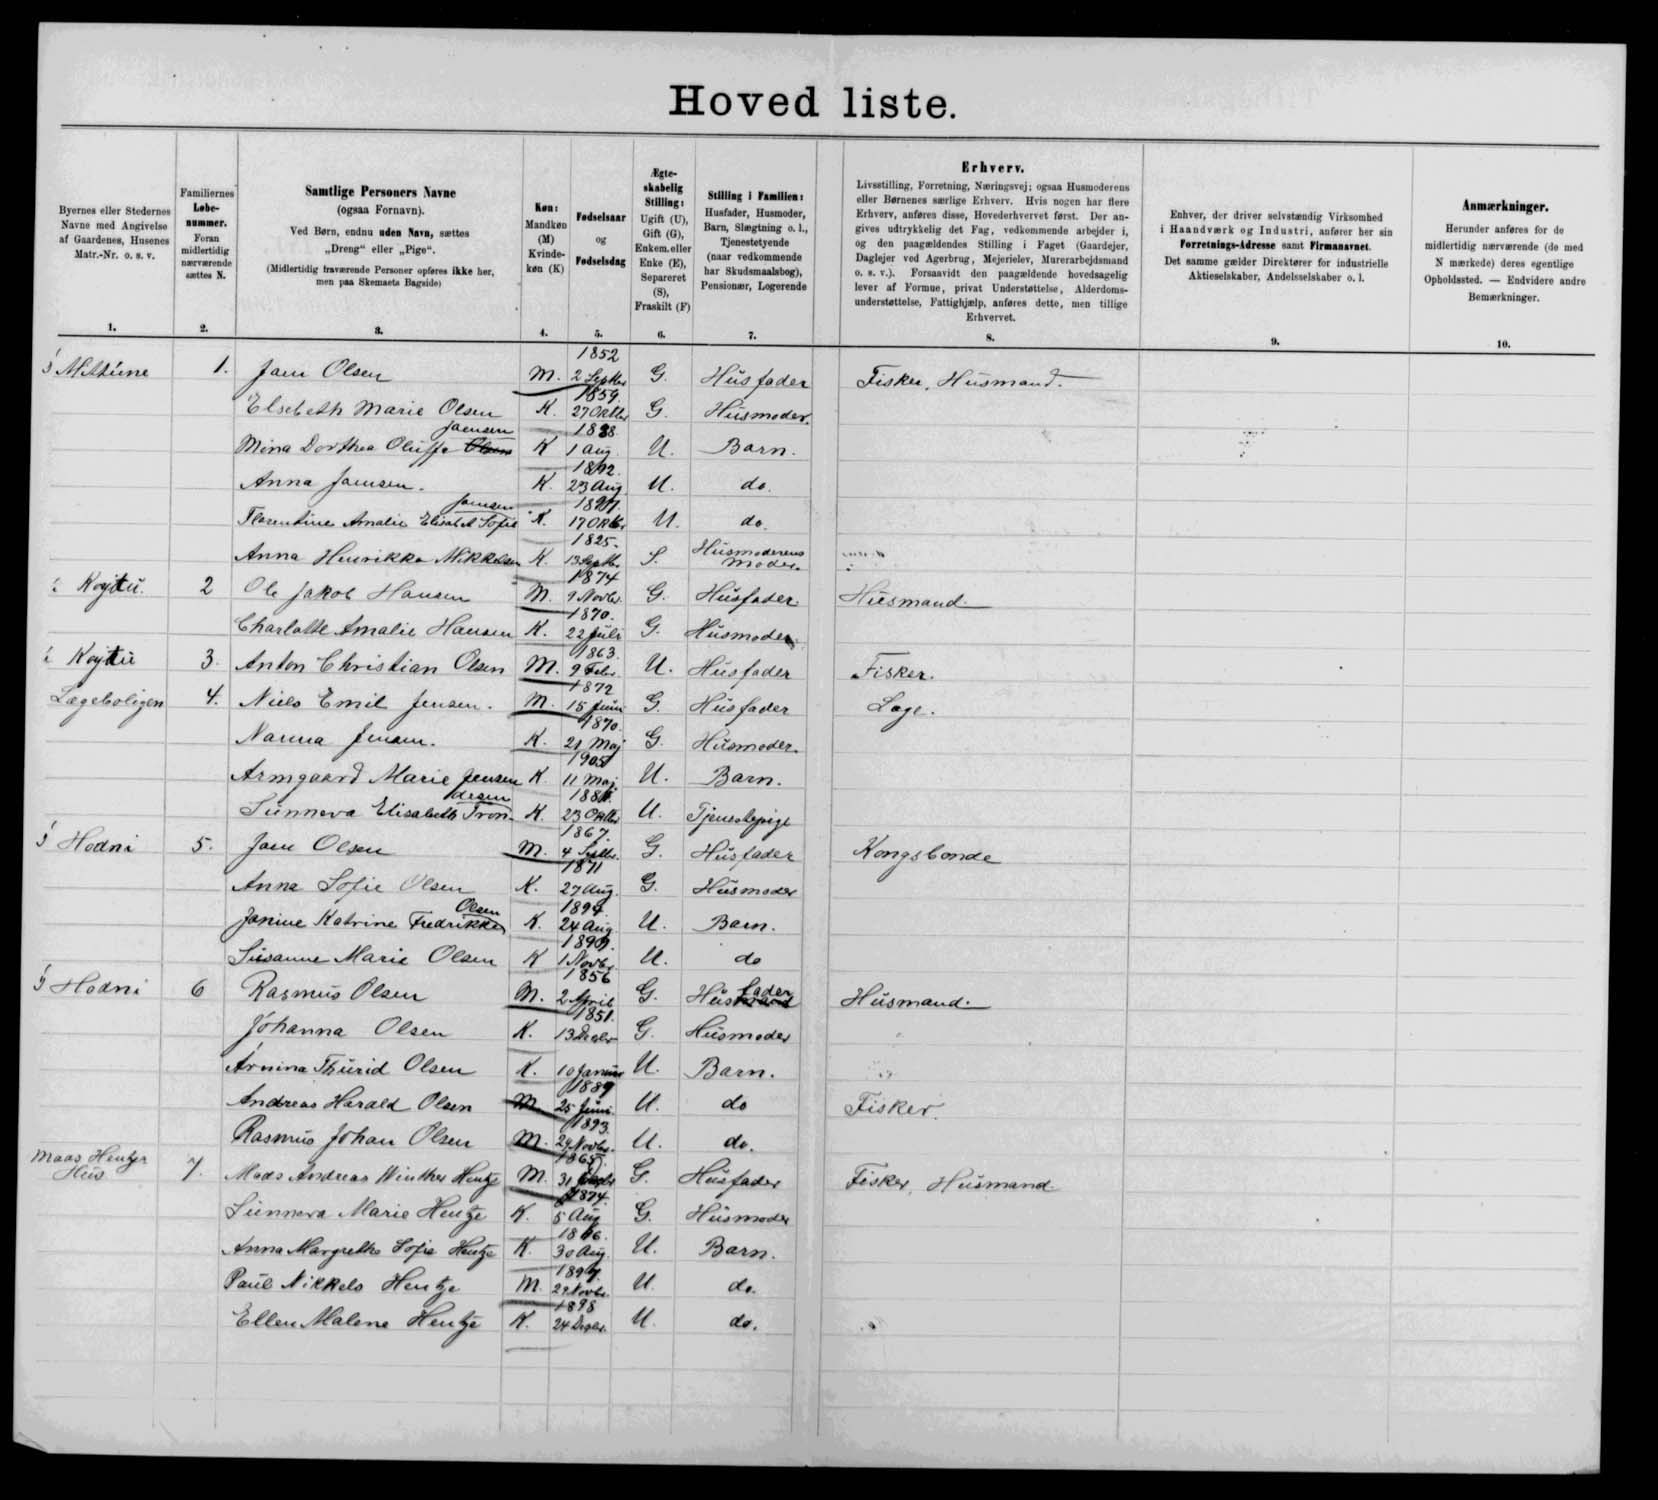 Hoved liste.
Byernes eller Stedernes Navne med Angivelse af Gaardenes, Husenes Matr.-Nr. o. s. v.
Familiernes Løbe-nummer. Foran midlertidig nærværende sættes N.
Samtlige Personers Navne
(ogsaa Fornavn).
Ved Børn, endnu uden Navn, sættes
„Dreng“ eller „Pige“.
(Midlertidig fraværende Personer opføres ikke her,
men paa Skemaets Bagside)
Køn: Mandkøn (M) Kvinde-køn (K)
Fødselsaar og Fødselsdag
Ægte-skabelig Stilling: Ugift (U), Gift (G), Enkem. eller Enke (E), Separeret (S), Fraskilt (F)
Stilling i Familien: Husfader, Husmoder, Barn, Slægtning o. l., Tjenestetyende (naar vedkommende har Skudsmaalsbog), Pensionær, Logerende
Erhverv.
Livsstilling, Forretning, Næringsvej; ogsaa Husmoderens
eller Børnenes særlige Erhverv. Hvis nogen har flere
Erhverv, anføres disse, Hovederhvervet først. Der an-
gives udtrykkelig det Fag, vedkommende arbejder i,
og den paagældendes Stilling i Faget (Gaardejer,
Daglejer ved Agerbrug, Mejerielev, Murerarbejdsmand
o. s. v.). Forsaavidt den paagældende hovedsagelig
lever af Formue, privat Understøttelse, Alderdoms-
understøttelse, Fattighjælp, anføres dette, men tillige
Erhvervet.
Enhver, der driver selvstændig Virksomhed
i Haandværk og Industri, anfører her sin
Forretnings-Adresse samt Firmanavnet.
Det samme gælder Direktører for industrielle
Aktieselskaber, Andelsselskaber o. l.
Anmærkninger.
Herunder anføres for de
midlertidig nærværende (de med
N mærkede) deres egentlige
Opholdssted. — Endvidere andre
Bemærkninger.
1. 2. 3. 4. 5. 6. 7. 8. 9. 10.
1. Olsen M. 1852 2 Septbr G. Husfader Fisker, Husmand.
Elsebeth Marie Olsen K. 1859. 27 Oktbr G. Husmoder.
Mina Dorthea K 1 Aug. U. Barn.
Anna K. 23 Aug U. do.
Florentine Amalie Sofie K. 17 Oktbr U. do.
Anna Henrikka Mikkelsen K. 1825. 13 Septbr S. Husmoderens Moder.
2 Ole Jakob Hansen M. 1874 9 Novbr. G. Husfader Husmand.
Charlotte Amalie Hansen K. 1870. 22 Juli G. Husmoder.
3. Anton Christian Olsen M. 1863. 9 Febr. U. Husfader Fisker.
Lægeboligen 4. Niels Emil Jensen. M. 1872 15 Juni G. Husfader Læge.
Nanna Jensen. K. 1870. 21 Maj G. Husmoder.
Armgaard Marie Jensen K. 11 Maj. U. Barn.
Sunneva Elisabeth Tron-desen K. 23 Oktbr U. Tjenestepige
í Hodni 5. Olsen M. 1867. 4 Septbr. G. Husfader Kongsbonde
Anna Sofie Olsen K. 1871 27 Aug. G. Husmoder
Janine Katrine Fredrikke Olsen K. 1894. 24 Aug. U. Barn.
Susanne Marie Olsen K 1 Novbr. U. do
í Hodni 6 Rasmus Olsen M. 1856 2 April G. Husfader Husmand.
Jóhanna Olsen K. 1851. 13 Decbr G. Husmoder
Arnina Thurid Olsen K. 10 Januar U. Barn.
Andreas Harald Olsen M. 1889 25 Juni. U. do Fisker.
Rasmus Johan Olsen M. 1893. 24 Novbr. U. do.
Maas Hentzes Hus 7. Mads Andreas Winther Hentze M. 1865. G. Husfader Fisker, Husmand
Sunneva Marie Hentze K. 1874. 5 Aug G. Husmoder
Anna Margrethe Sofie Hentze K. 30 Aug. U. Barn.
Paul Nikkels Hentze M. 1897. 29 Novbr. U. do.
Ellen Malene Hentze K. 1898 24 Decbr. U. do.